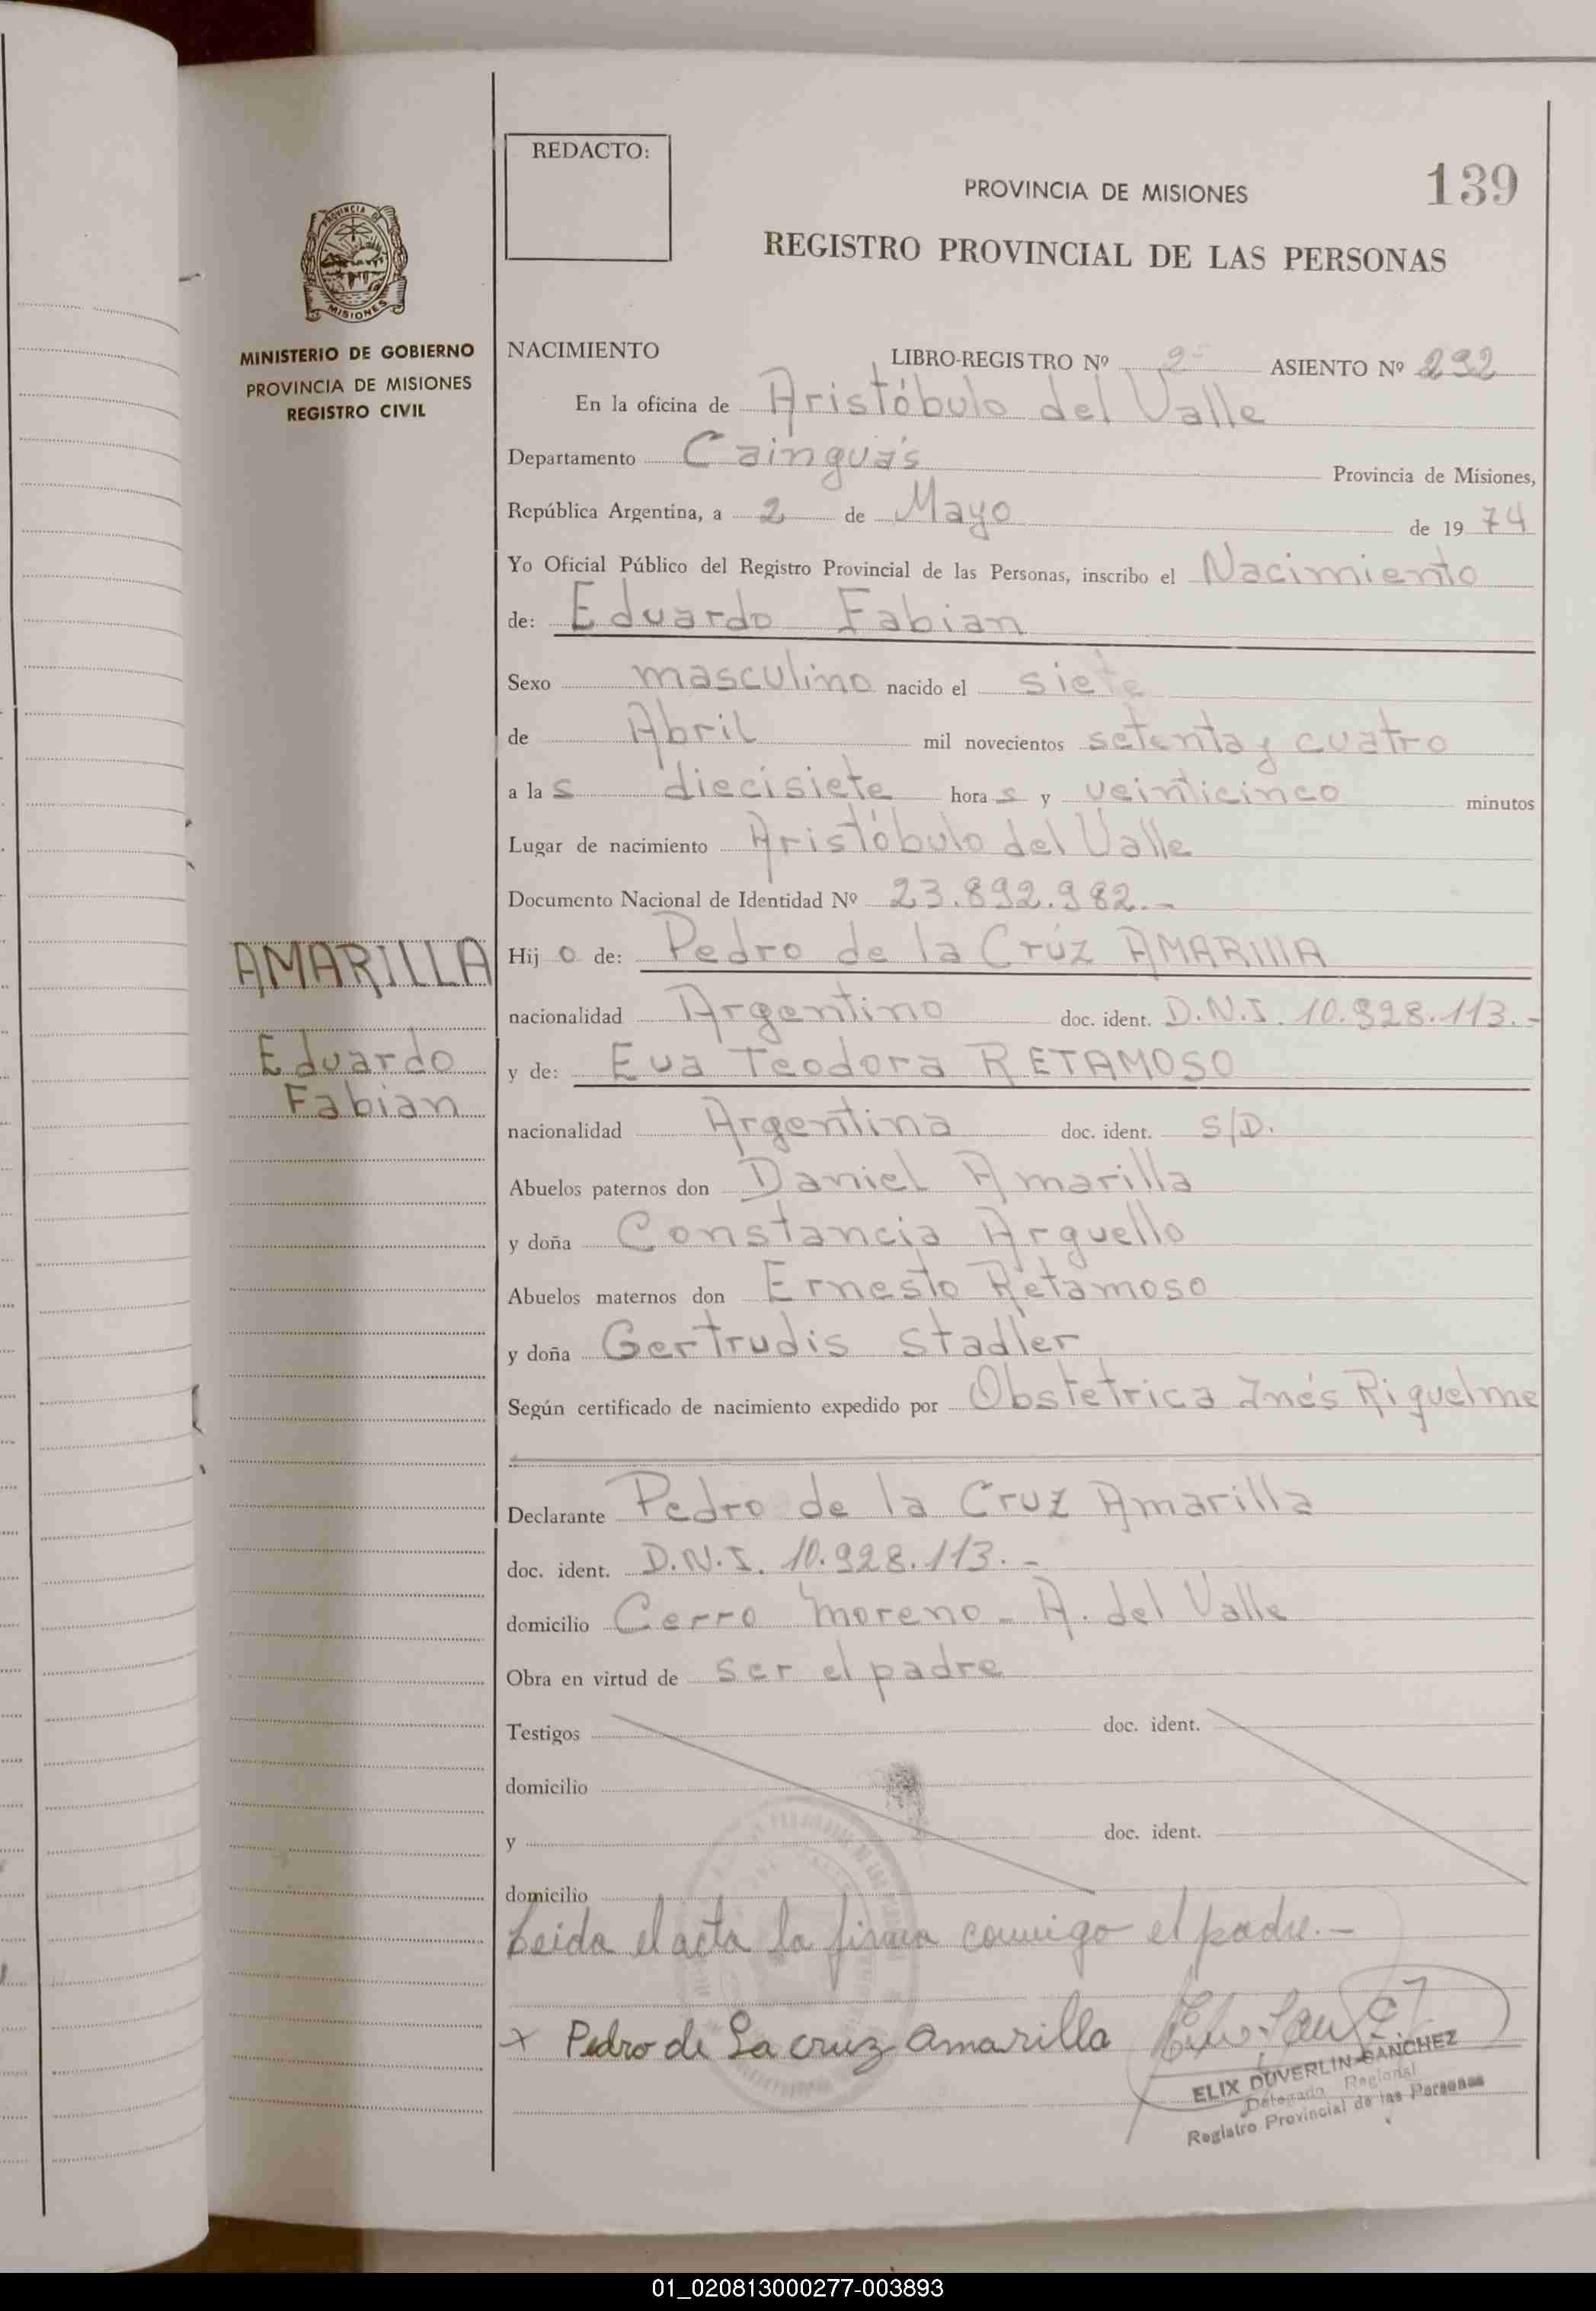 REDACTO:
PROVINCIA DE MISIONES
139
REGISTRO PROVINCIAL DE LAS PERSONAS
PROVINCIA DE
MISIONES
MINISTERIO DE GOBIERNO
PROVINCIA DE MISIONES
REGISTRO CIVIL
NACIMIENTO LIBRO-REGISTRO Nº 2- ASIENTO Nº 292
En la oficina de Aristóbulo del Valle
Departamento Cainguás Provincia de Misiones,
República Argentina, a 2 de Mayo de 1974
Yo Oficial Público del Registro Provincial de las Personas, inscribo el Nacimiento
de: Eduardo Fabian
Sexo masculino nacido el siete
de Abril mil novecientos setenta y cuatro
a las diecisiete horas y veinticinco minutos
Lugar de nacimiento Aristóbulo del Valle
Documento Nacional de Identidad Nº 23.892.982.-
AMARILLA
Eduardo
Fabian
Hijo de: Pedro de la Cruz AMARILLA
nacionalidad Argentino doc. ident. D.N.I. 10.928.113.-
y de: Eva Teodora RETAMOSO
nacionalidad Argentina doc. ident. S/D.
Abuelos paternos don Daniel Amarilla
y doña Constancia Arguello
Abuelos maternos don Ernesto Retamoso
y doña Gertrudis Stadler
Según certificado de nacimiento expedido por Obstetrica Inés Riquelme
Declarante Pedro de la Cruz Amarilla
doc. ident. D.N.I. 10.928.113.-
domicilio Cerro Moreno - A. del Valle
Obra en virtud de ser el padre
Testigos doc. ident.
domicilio
y doc. ident.
domicilio
Leida el acta la firma conmigo el padre.-
x Pedro de La cruz amarilla
ELIX DUVERLIN SANCHEZ
Delegado Regional
Registro Provincial de las Personas
01_020813000277-003893